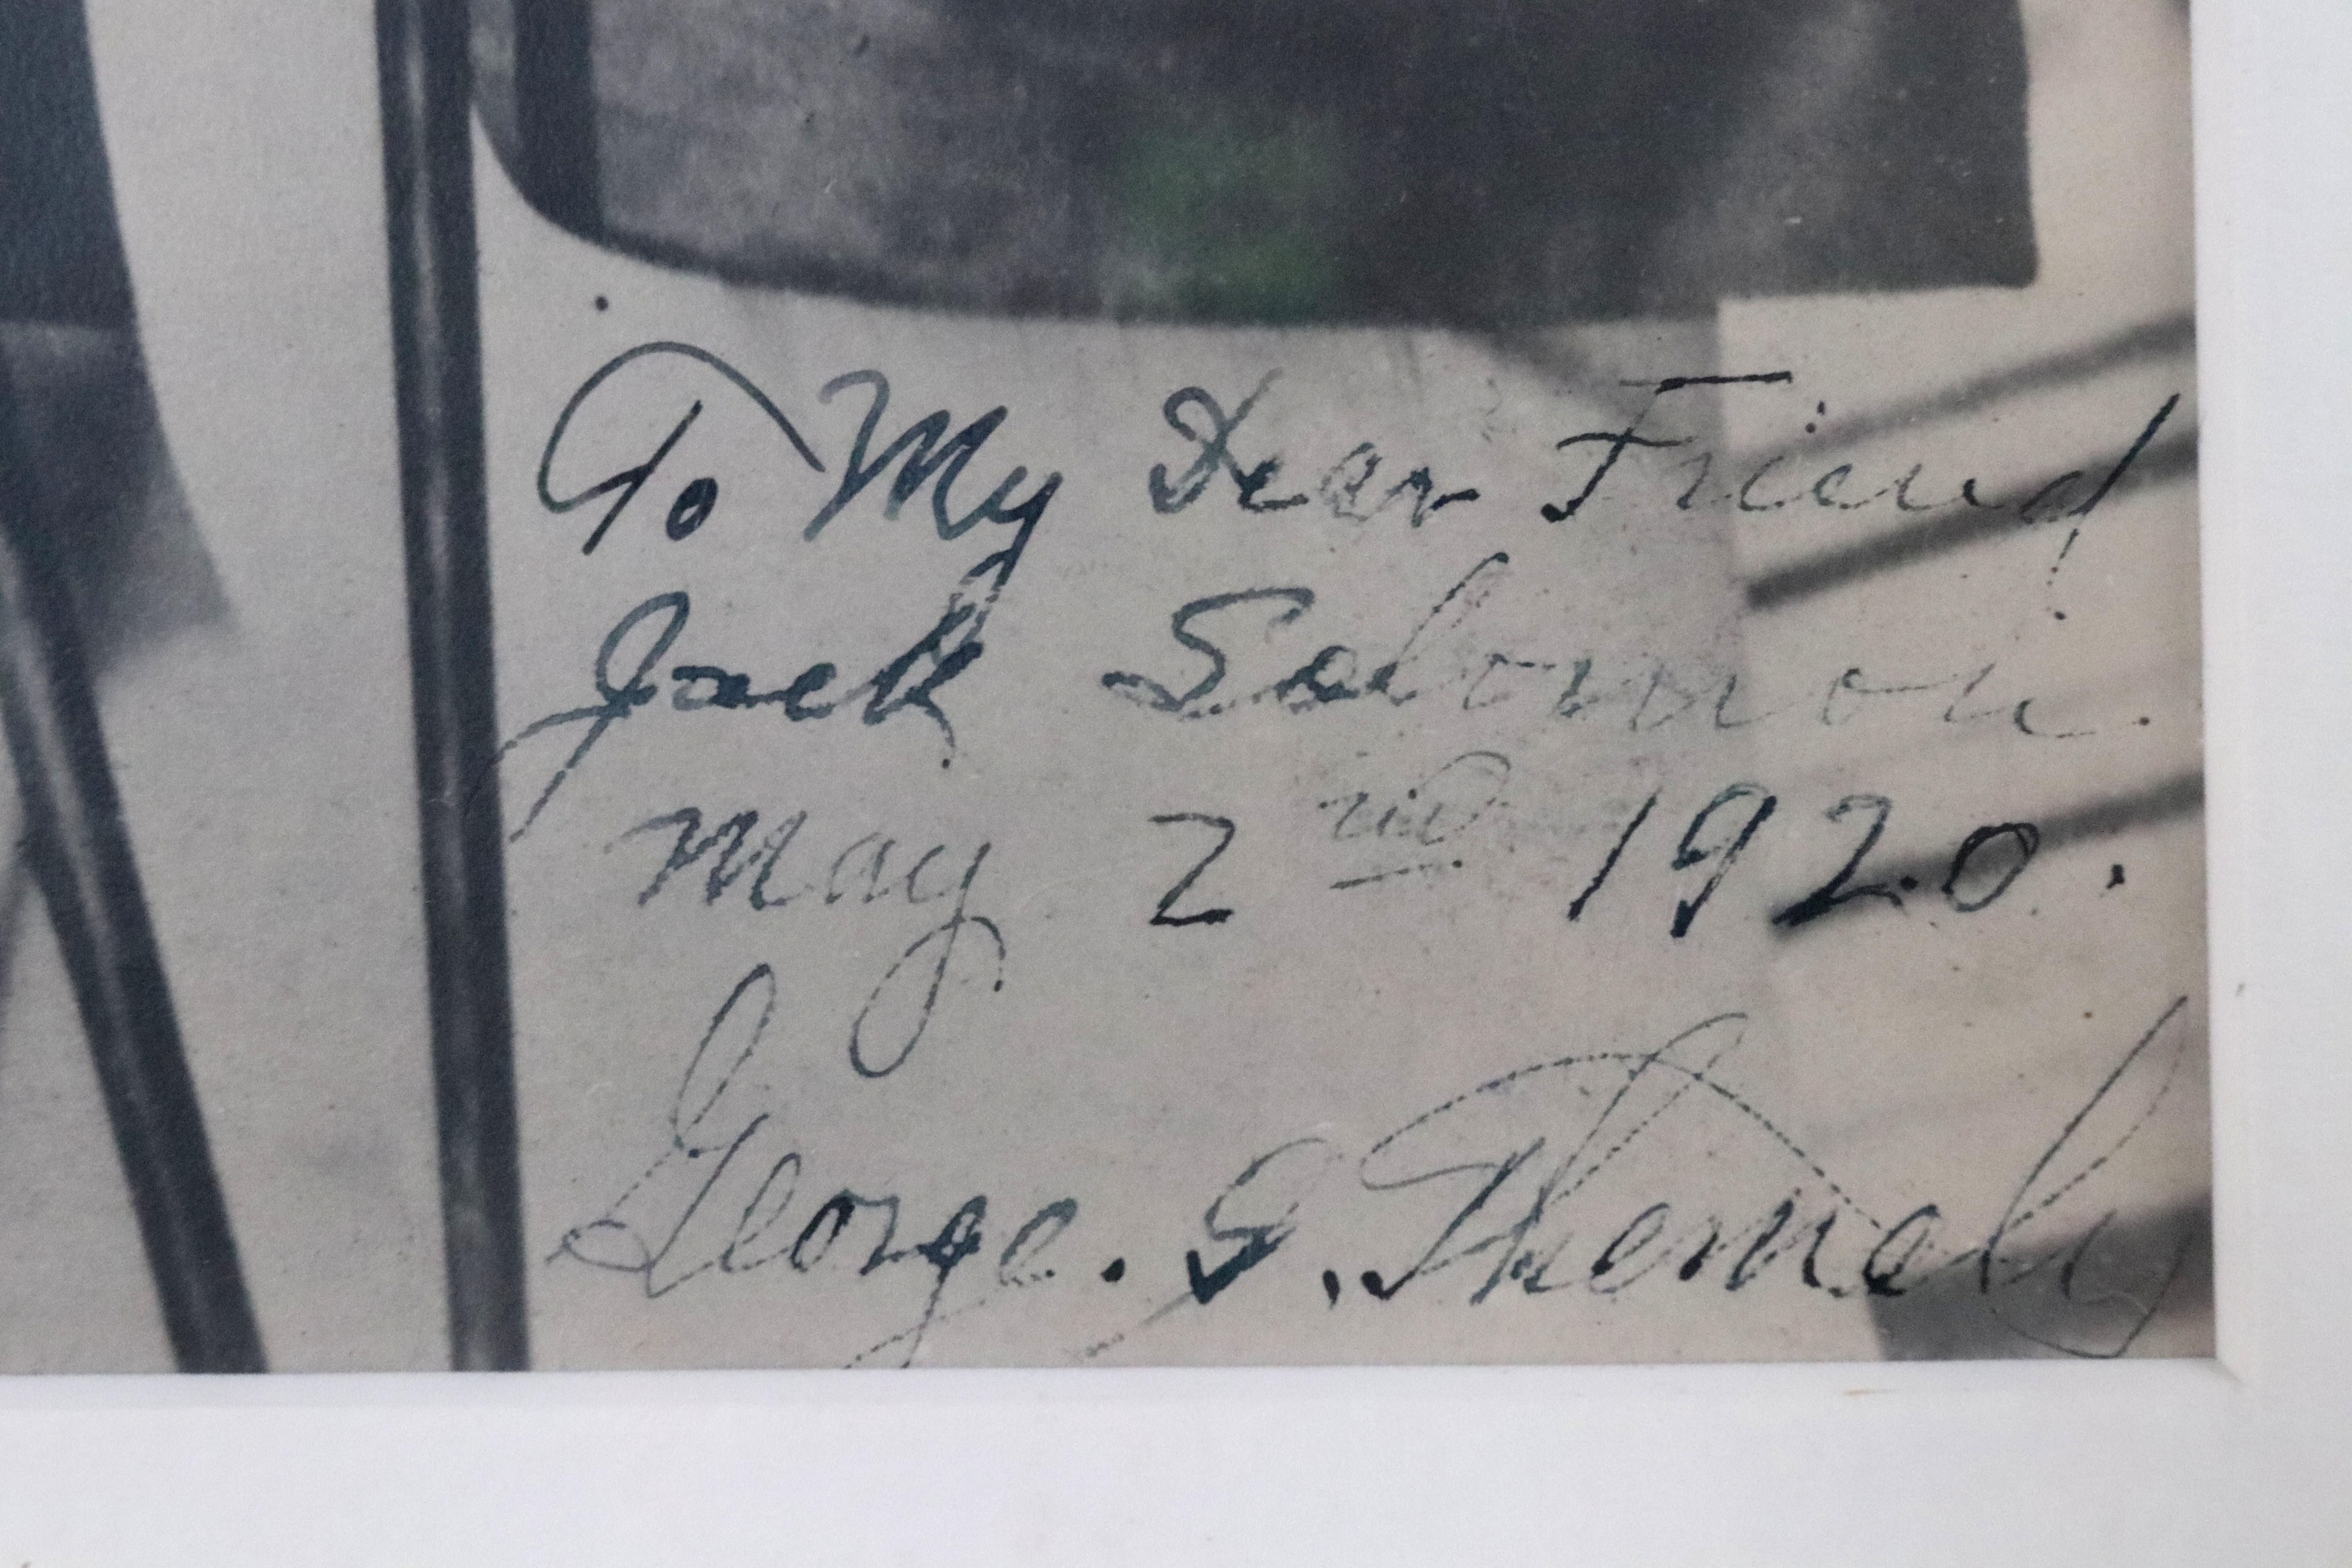 To My Dear Friend
Jack Solomon.
May 2nd 1920.
George. S. Themely